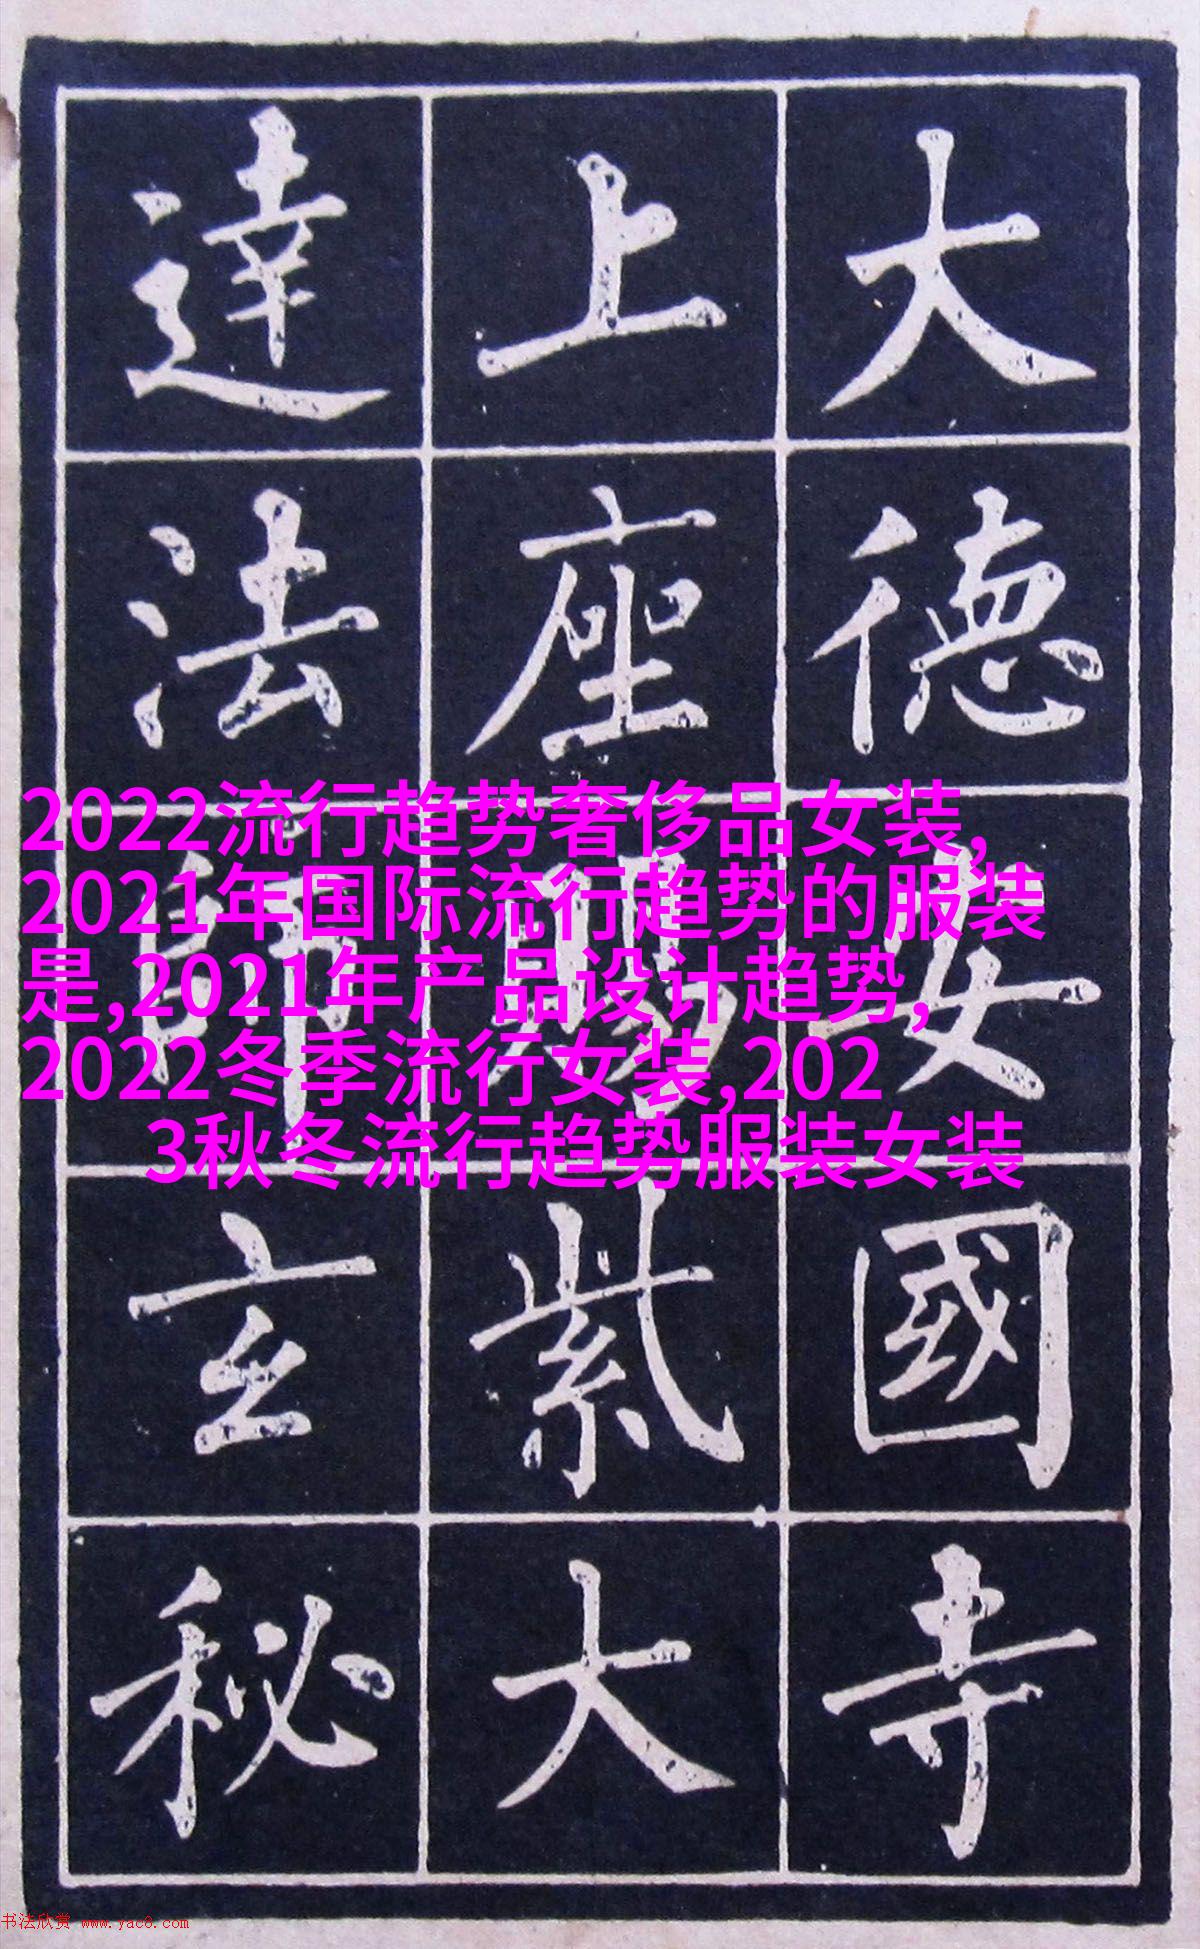 大德安國寺
上座賜紫大
達法師玄秘
2022流行趋势奢侈品女装,
2021年国际流行趋势的服装
是,2021年产品设计趋势,
2022冬季流行女装,202
3秋冬流行趋势服装女装
书法欣赏 www.yac8.com